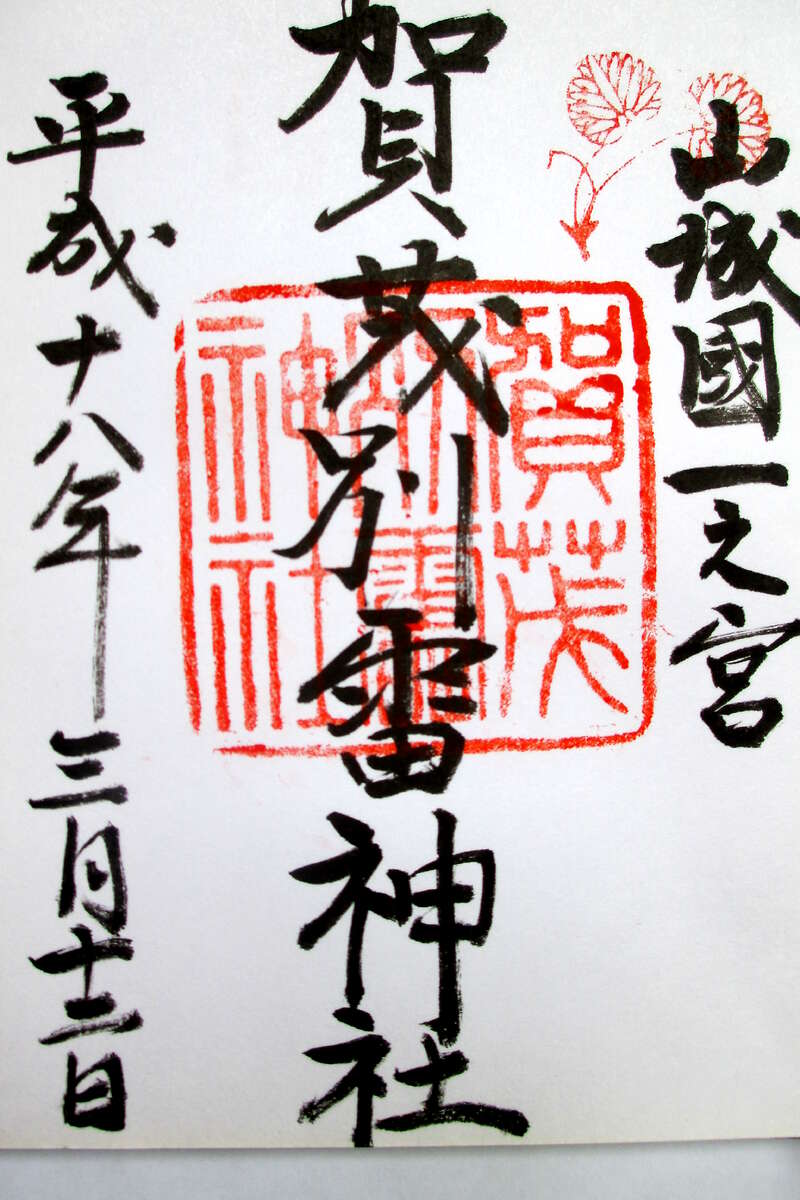 山城國一之宮
賀茂別雷神社
賀茂
別雷
神社
平成十八年三月十二日